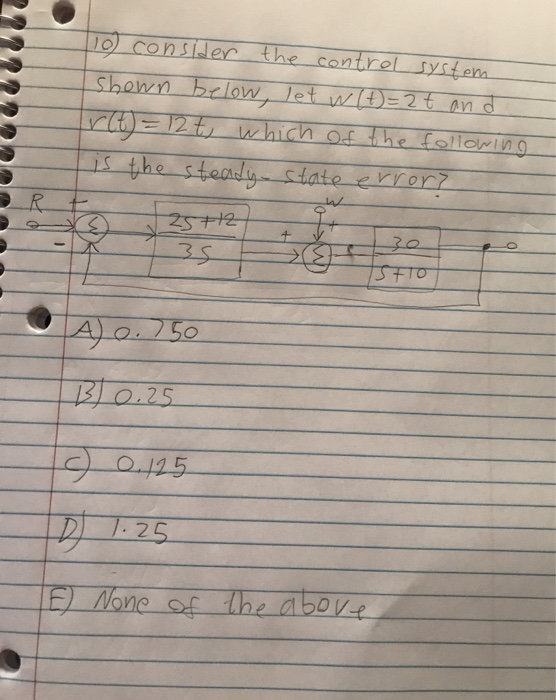 10) consider the control system
shown below, let w(t)=2t and
r(t)=12t, which of the following
is the steady-state error?
R + - Σ 2s+12 / 3s + w + Σ 30 / s+10
A) 0.750
B) 0.25
C) 0.125
D) 1.25
E) None of the above